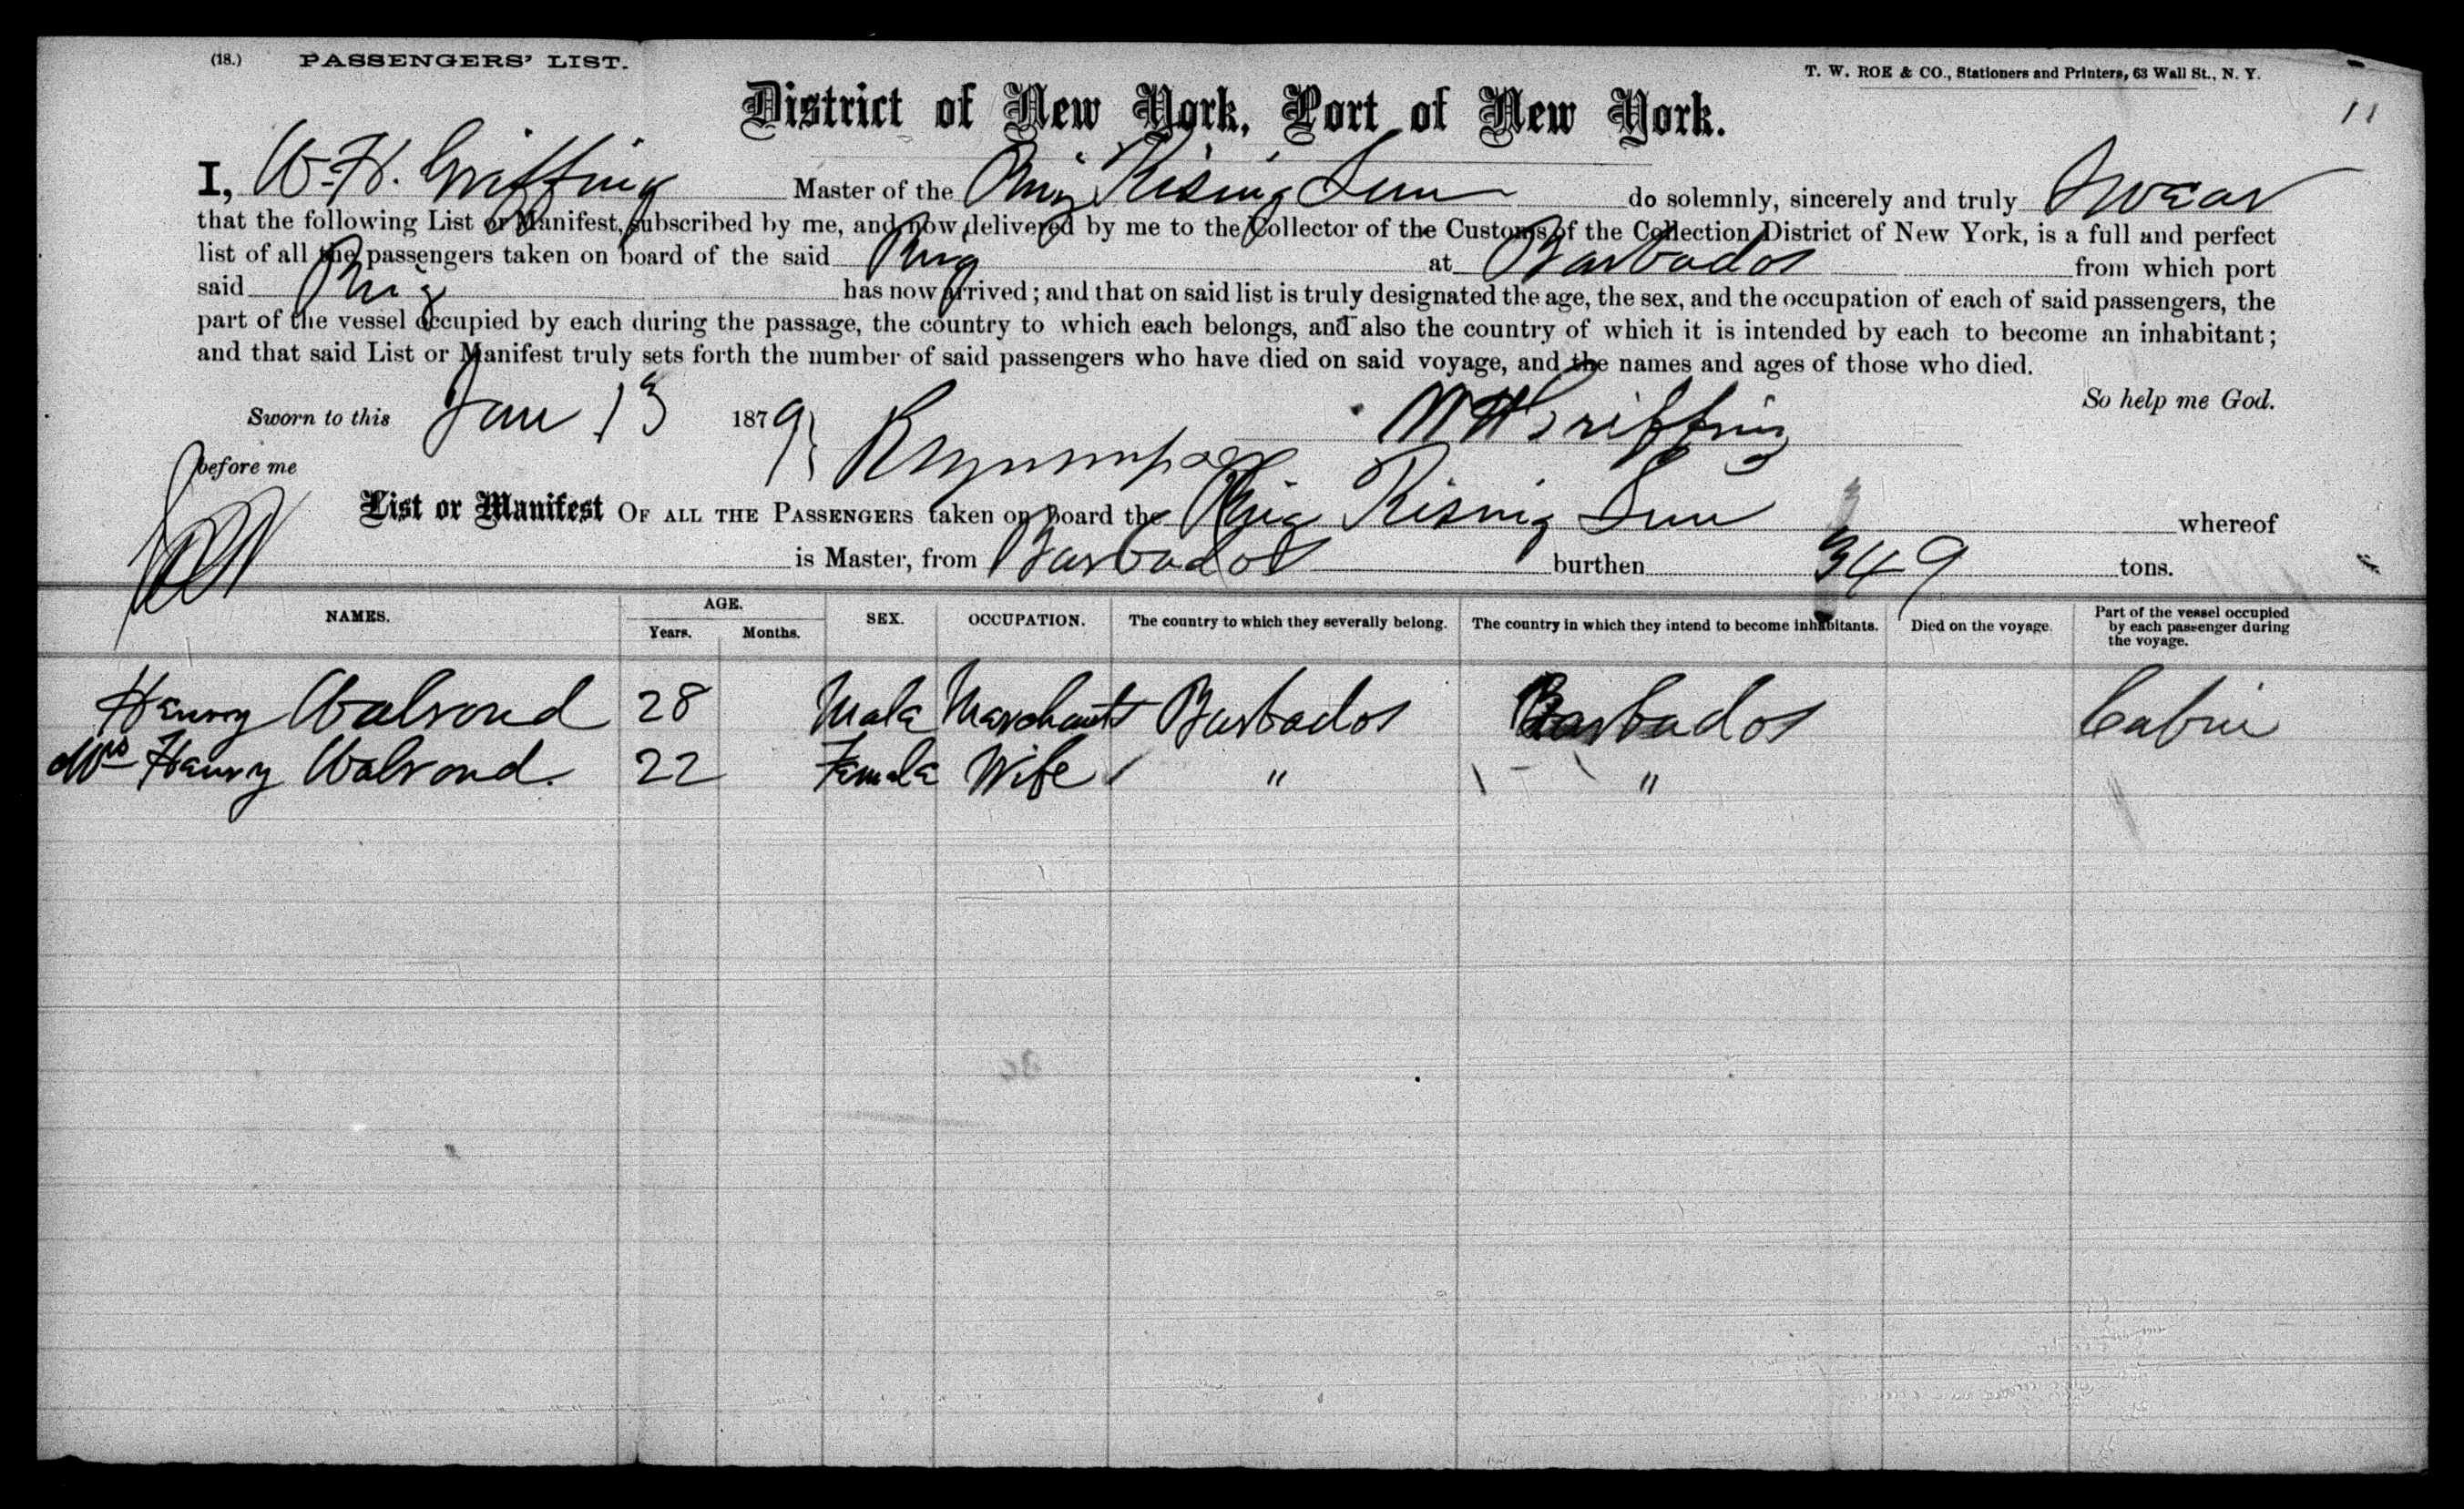 (18.) PASSENGERS' LIST.
T. W. ROE & CO., Stationers and Printers, 63 Wall St., N. Y.
11
District of New York, Port of New York.
I, W. H. Griffing Master of the Brig Rising Sun do solemnly, sincerely and truly Swear
that the following List or Manifest, subscribed by me, and now delivered by me to the Collector of the Customs of the Collection District of New York, is a full and perfect
list of all the passengers taken on board of the said Brig at Barbados from which port
said Brig has now arrived; and that on said list is truly designated the age, the sex, and the occupation of each of said passengers, the
part of the vessel occupied by each during the passage, the country to which each belongs, and also the country of which it is intended by each to become an inhabitant;
and that said List or Manifest truly sets forth the number of said passengers who have died on said voyage, and the names and ages of those who died.
So help me God.
Sworn to this Jan 13 1879 W H Griffing
before me
List or Manifest OF ALL THE PASSENGERS taken on board the Brig Rising Sun whereof
is Master, from Barbados burthen 349 tons.
NAMES. AGE. Years. Months. SEX. OCCUPATION. The country to which they severally belong. The country in which they intend to become inhabitants. Died on the voyage. Part of the vessel occupied by each passenger during the voyage.
Henry Walrond 28 Male Merchant Barbados Barbados Cabin
Mrs Henry Walrond. 22 Female Wife " "